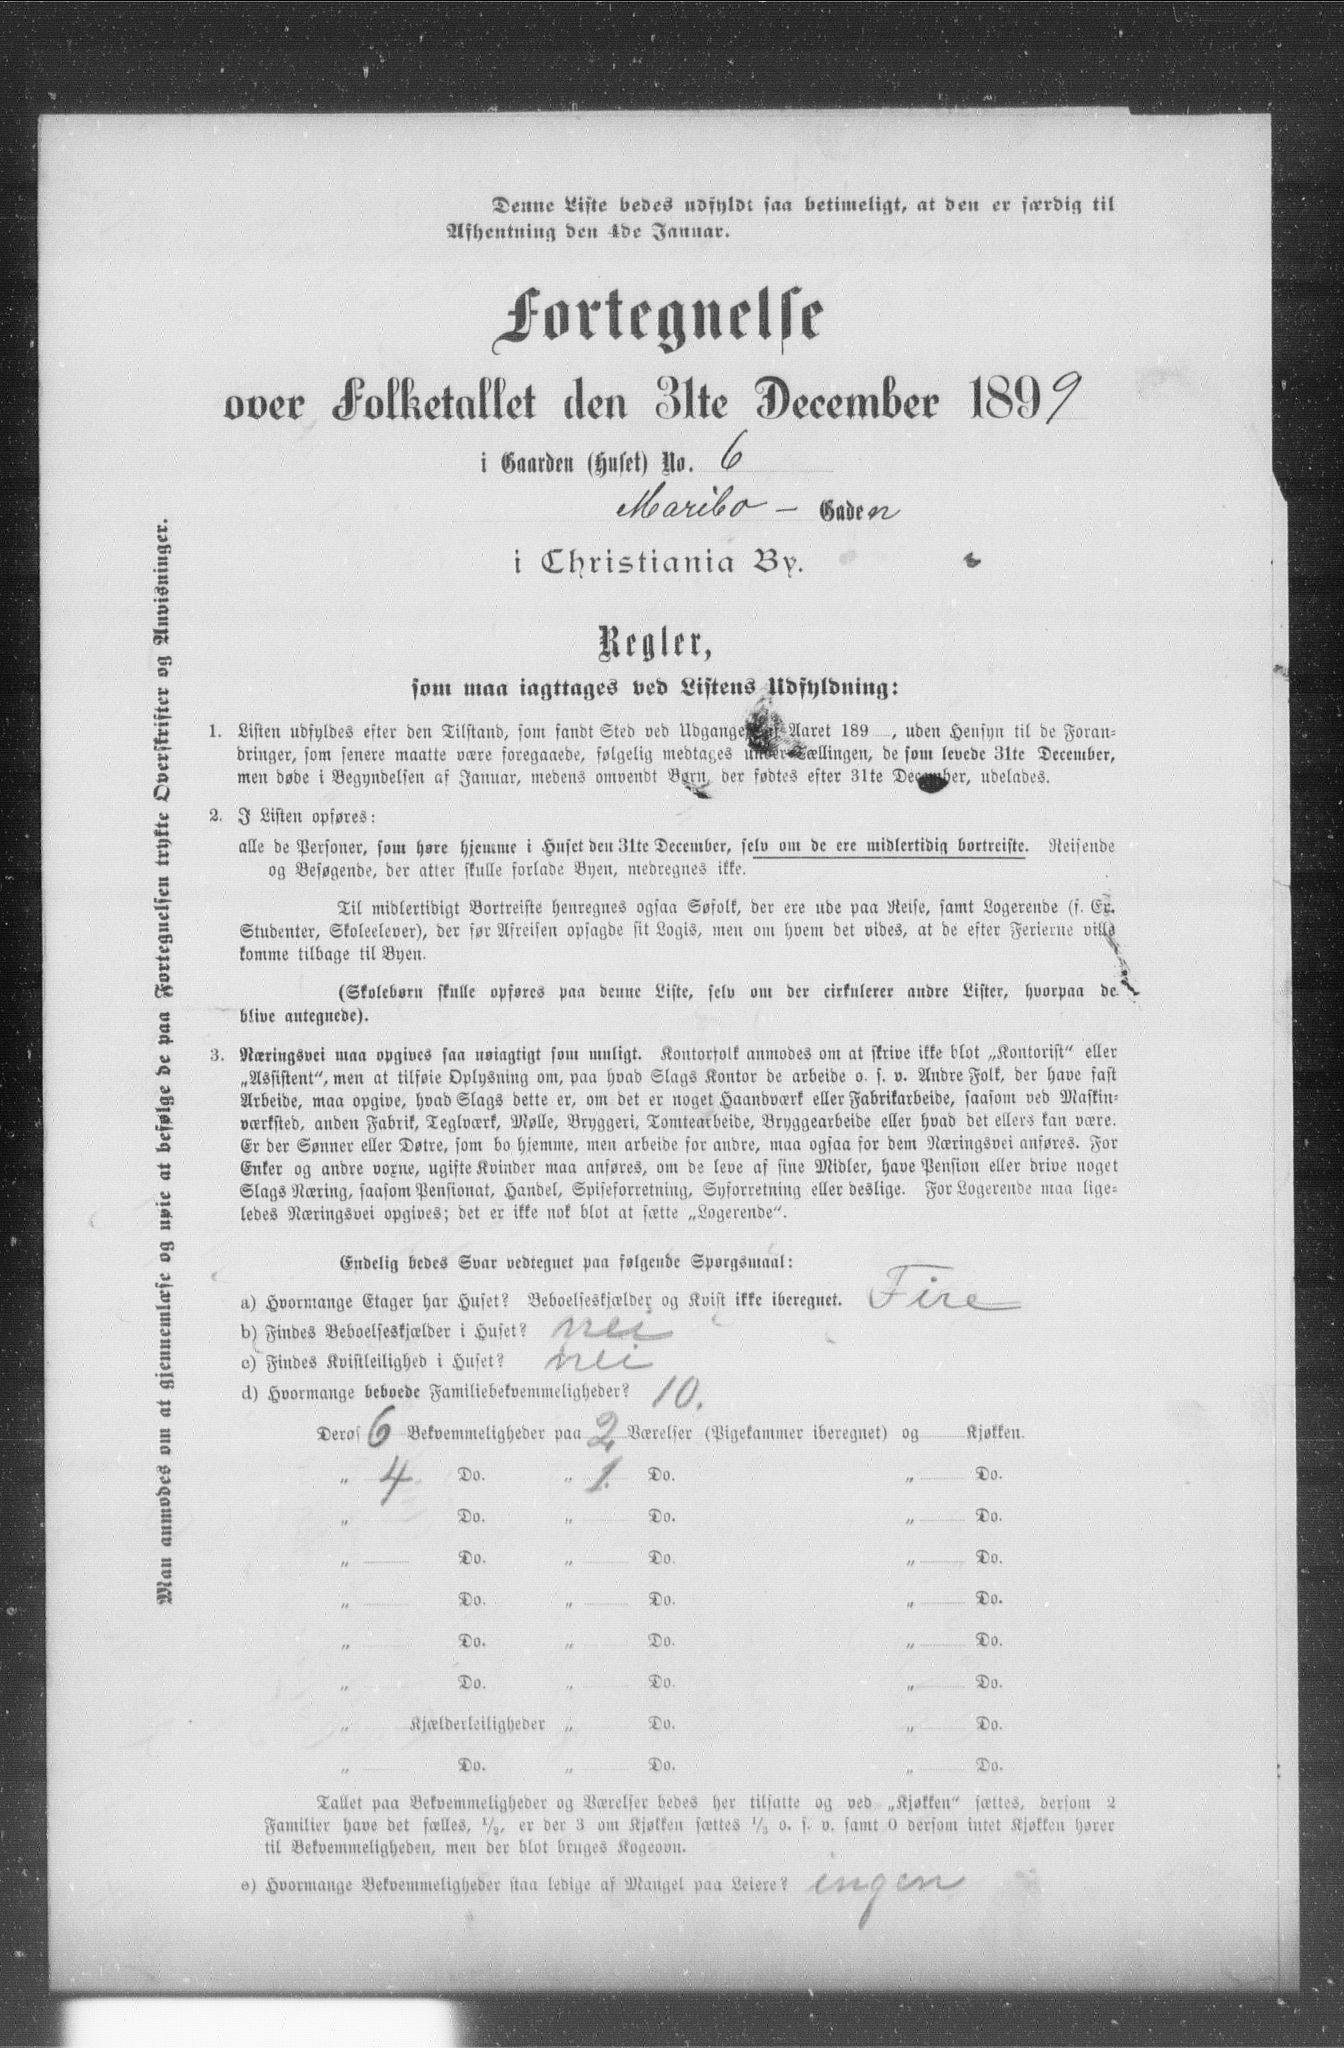 Denne Liste bedes udfyldt saa betimeligt, at den er færdig til
Afhentning den 4de Januar.
Fortegnelse
over Folketallet den 31te December 1899
i Gaarden (Huset) No. 6
Maribo - Gaden
i Christiania By.
Regler,
som maa iagttages ved Listens Udfyldning:
1. Listen udfyldes efter den Tilstand, som fandt Sted ved Udgangen af Aaret 189 , uden Hensyn til de Foran-
dringer, som senere maatte være foregaaede, følgelig medtages under Tællingen, de som levede 31te December,
men døde i Begyndelsen af Januar, medens omvendt Børn, der fødtes efter 31te December, udelades.
2. I Listen opføres:
alle de Personer, som høre hjemme i Huset den 31te December, selv om de ere midlertidig bortreiste. Reisende
og Besøgende, der atter skulle forlade Byen, medregnes ikke.
Til midlertidigt Bortreiste henregnes ogsaa Søfolk, der ere ude paa Reise, samt Logerende (f. Ex.
Studenter, Skoleelever), der før Afreisen opsagde sit Logis, men om hvem det vides, at de efter Ferierne ville
komme tilbage til Byen.
(Skolebørn skulle opføres paa denne Liste, selv om der cirkulerer andre Lister, hvorpaa de
blive antegnede).
3. Næringsvei maa opgives saa nøiagtigt som muligt. Kontorfolk anmodes om at skrive ikke blot „Kontorist" eller
„Assistent", men at tilføie Oplysning om, paa hvad Slags Kontor de arbeide o. s. v. Andre Folk, der have fast
Arbeide, maa opgive, hvad Slags dette er, om det er noget Haandværk eller Fabrikarbeide, saasom ved Maskin-
værksted, anden Fabrik, Teglværk, Mølle, Bryggeri, Tomtearbeide, Bryggearbeide eller hvad det ellers kan være.
Er der Sønner eller Døtre, som bo hjemme, men arbeide for andre, maa ogsaa for dem Næringsvei anføres. For
Enker og andre voxne, ugifte Kvinder maa anføres, om de leve af sine Midler, have Pension eller drive noget
Slags Næring, saasom Pensionat, Handel, Spiseforretning, Syforretning eller deslige. For Logerende maa lige-
ledes Næringsvei opgives; det er ikke nok blot at sætte „Logerende".
Endelig bedes Svar vedtegnet paa følgende Spørgsmaal:
a) Hvormange Etager har Huset? Beboelseskjælder og Kvist ikke iberegnet. Fire
b) Findes Beboelseskjælder i Huset? nei
c) Findes Kvistleilighed i Huset? nei
d) Hvormange beboede Familiebekvemmeligheder? 10.
Deraf 6 Bekvemmeligheder paa 2 Værelser (Pigekammer iberegnet) og Kjøkken.
„ 4 Do. „ 1. Do. „ Do.
„ Do. „ Do. „ Do.
„ Do. „ Do. „ Do.
„ Do. „ Do. „ Do.
„ Do. „ Do. „ Do.
„ Do. „ Do. „ Do.
„ Kjælderleiligheder „ Do. „ Do.
„ Do. „ Do. „ Do.
Tallet paa Bekvemmeligheder og Værelser bedes her tilsatte og ved „Kjøkken" sættes, dersom 2
Familier have det fælles, 1/2, er der 3 om Kjøkken sættes 1/3 o. s. v. samt 0 dersom intet Kjøkken hører
til Bekvemmeligheden, men der blot bruges Kogeovn.
e) Hvormange Bekvemmeligheder staa ledige af Mangel paa Leiere? ingen
Man anmodes om at gjennemlæse og nøie at befølge de paa Fortegnelsen trykte Overskrifter og Anvisninger.